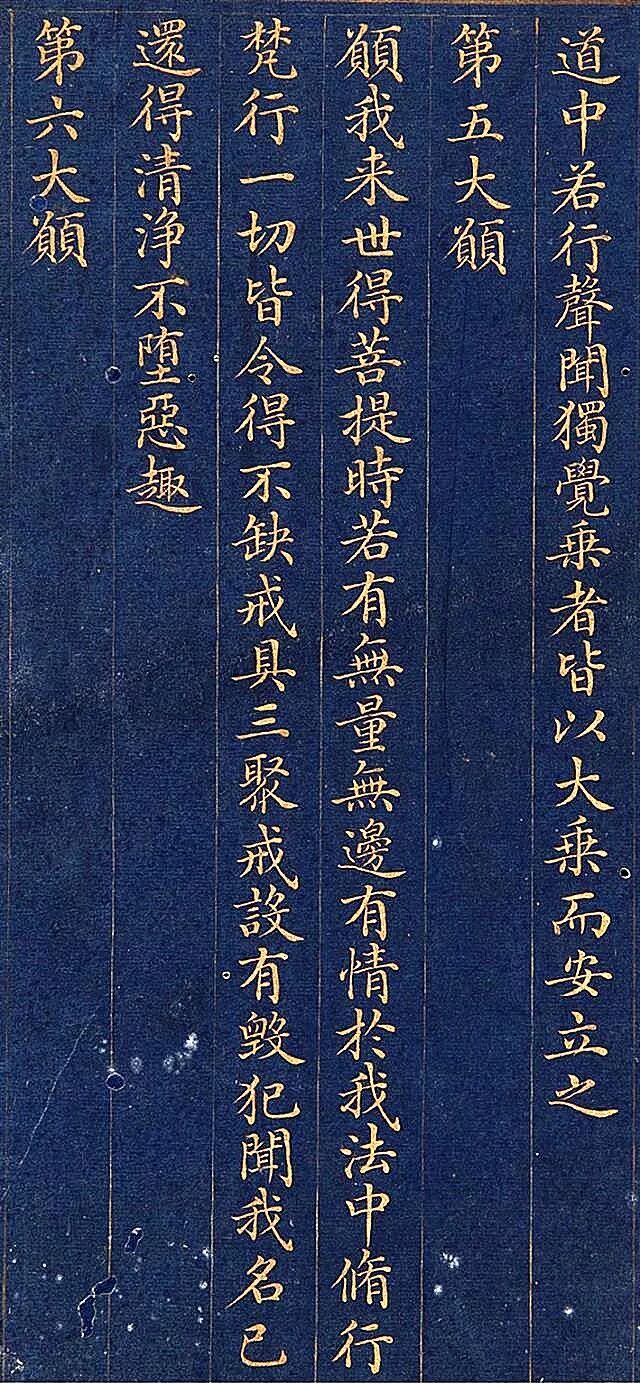 道中若行聲聞獨覺乗者皆以大乗而安立之
第五大願
願我来世得菩提時若有無量無邊有情於我法中脩行
梵行一切皆令得不缺戒具三聚戒設有毀犯聞我名已
還得清淨不堕惡趣
第六大願